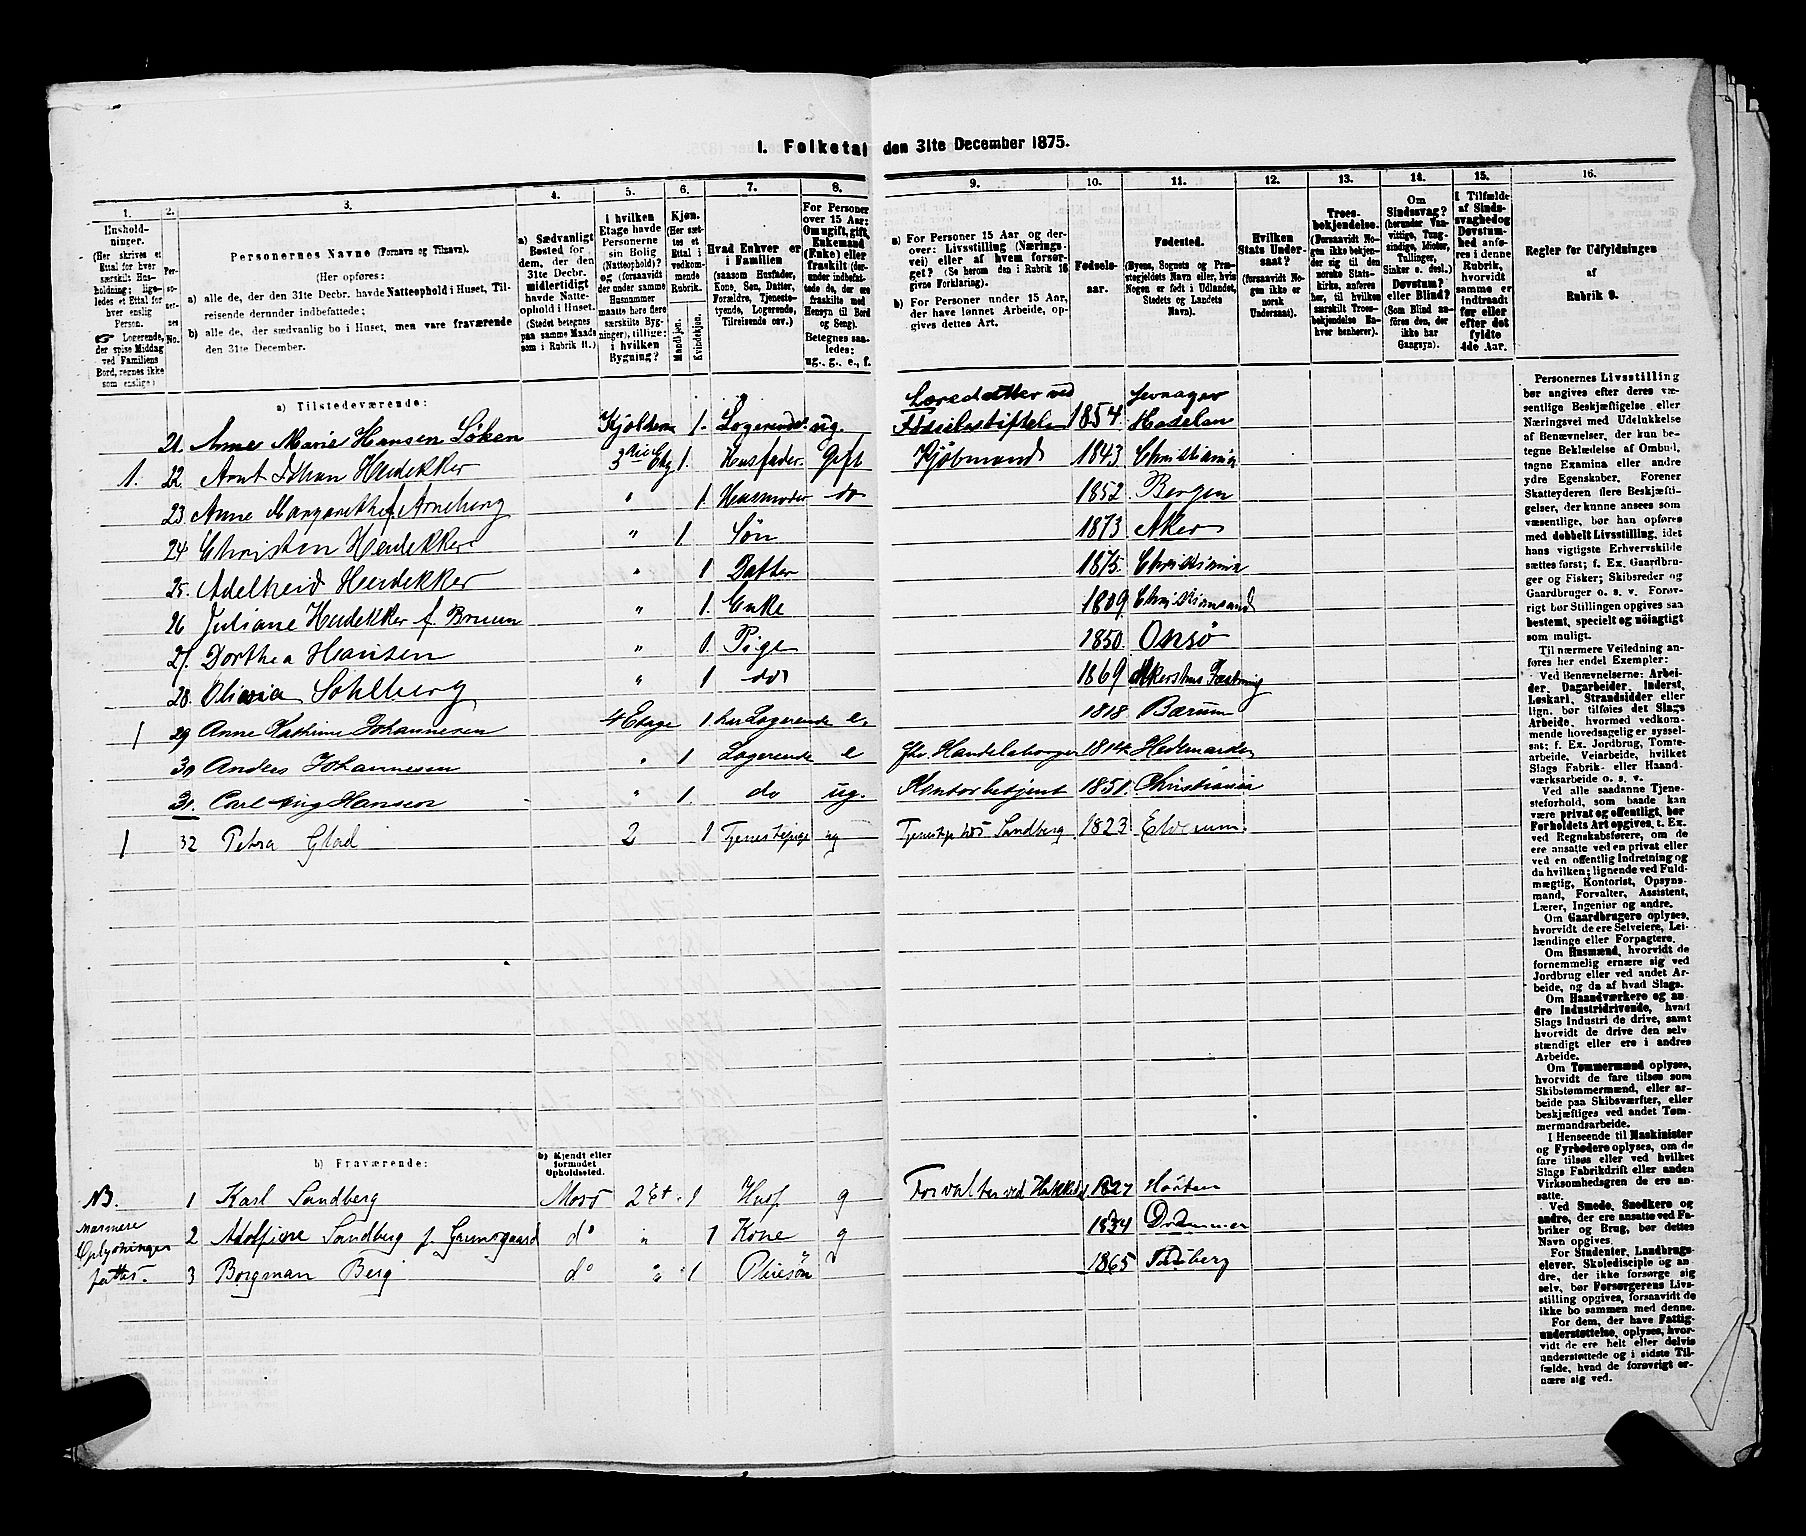 I. Folketal den 31te December 1875.
1. 2. 3. 4. 5. 6. 7. 8. 9. 10. 11. 12. 13. 14. 15. 16.
Husholdninger.
(Her skrives et Ettal for hver særskilt Husholdning; ligeledes et Ettal for hver enslig Person.
☞ Logerende, der spise Middag ved Familiens Bord, regnes ikke som enslige)
Personernes No.
Personernes Navne (Fornavn og Tilnavn).
(Her opføres:
a) alle de, der den 31te Decbr. havde Natteophold i Huset, Tilreisende derunder indbefattede;
b) alle de, der sædvanlig bo i Huset, men vare fraværende den 31te December.
a) Sædvanligt Bosted for dem, der den 31te Decbr. midlertidigt havde Natteophold i Huset. (Stedet betegnes paa samme Maade som i Rubrik 11.)
I hvilken Etage havde Personerne sin Bolig (Natteophold)? (forsaavidt der under samme Husnummer maatte høre flere særskilte Bygninger), tillige: i hvilken Bygning?
Kjøn. (Her sættes et Ettal i vedkommende Rubrik.
Mandkjøn. Kvindekjøn.
Hvad Enhver er i Familien (saasom Husfader, Kone, Søn, Datter, Forældre, Tjenestetyende, Logerende, Tilreisende osv.)
For Personer over 15 Aar: Om ugift, gift, Enkemand (Enke) eller fraskilt (derunder indbefattede de, der ere fraskilte med Hensyn til Bord og Seng). Betegnes saaledes: ug., g., e., f.
a) For Personer 15 Aar og derover: Livsstilling (Næringsvei) eller af hvem forsørget? (Se herom den i Rubrik 16 givne Forklaring).
b) For Personer under 15 Aar, der have lønnet Arbeide, opgives dettes Art.
Fødselsaar.
Fødested.
(Byens, Sognets og Præstegjeldets Navn eller, hvis Nogen er født i Udlandet, Stedets og Landets Navn).
Hvilken Stats Undersaat?
(forsaavidt Nogen ikke er norsk Undersaat).
Troesbekjendelse.
(Forsaavidt Nogen ikke bekjender sig til den norske Statskirke, anføres her, til hvilken særskilt Troesbekjendelse Enhver henhører).
Om Sindssvag? (herunder Vanvittige, Tungsindige, Idioter, Tullinger, Sinker o. desl.) Døvstum? eller Blind? (Som Blind anføres den, der ikke har Gangsyn).
I Tilfælde af Sindssvaghed og Døvstumhed anføres i denne Rubrik, hvorvidt samme er indtraadt før eller efter det fyldte 4de Aar.
Regler for Udfyldningen
af
Rubrik 9.
a) Tilstedeværende:
21. Anne Marie Hansen Løken Kjelderen 1. Logerende. ug. Læredatter ved Fødselsstiftelsen 1854 Jevnager Hadelan
1. 22. Arnt Johan Heidekker 3die Etg 1. Husfader. Gift Kjøbmand 1843 Christiania
23. Anne Margarethe f. Arneberg " 1 Husmoder do 1852 Bergen
24 Christen Heidekker " 1. Søn 1873 Aker
25. Adelheid Heidekker " 1 Datter 1875. Christiania
26 Juliane Heidekker f. Bruun " 1. Enke 1809. Christiansand
27. Dorthea Hansen " 1. Pige 1850. Onsø
28. Olivia Sohlberg " 1 do 1869 Akershus Fæstning
1 29 Anne Kathrine Johannesen 4 Etage 1. har Logerende e. 1818 Bærum
30 Anders Johannesen " 1 Logerende e fhv. Handelsborger 1814 Hedemarken
31. Carl Aug Hansen " 1. do ug. Kontorbetjent 1851. Christiania
1 32 Petra Glad 2 1 Tjenestepige ug Tjenestep hos Sandberg 1823 Elverum.
b) Fraværende:
b) Kjendt eller formodet Opholdssted.
NB. 1 Karl Sandberg Moss 2 Et. 1 Husf g Forvalter ved 1827 Høiten
nærmere 2 Adolfine Sandberg f. do " 1 Kone g 1834 Drammen
Oplysninger
fattes. 3 Borgman Berg do " 1 Pleiesøn 1865
Personernes Livsstilling
bør angives efter deres væ-
sentlige Beskjæftigelse eller
Næringsvei med Udelukkelse
af Benævnelser, der kun be-
tegne Beklædelse af Ombud,
tagne Examina eller andre
ydre Egenskaber. Forener
Skatteyderen flere Beskjæfti-
gelser, der kunne ansees som
væsentlige, bør han opføres
med dobbelt Livsstilling, idet
hans vigtigste Erhvervskilde
sættes først; f. Ex. Gaardbru-
ger og Fisker; Skibsreder og
Gaardbruger o. s. v. Forøv-
rigt bør Stillingen opgives saa
bestemt, specielt og nøiagtigt
som muligt.
Til nærmere Veiledning an-
føres her endel Exempler:
Ved Benævnelserne: Arbei-
der, Dagarbeider, Inderst,
Løskarl, Strandsidder eller
lign. bør tilføies det Slags
Arbeide, hvormed vedkom-
mende hovedsagelig er syssel-
sat; f. Ex. Jordbrug, Tomte-
arbeide, Veiarbeide, hvilket
Slags Fabrik- eller Haand-
værksarbeide o. s. v.
Ved alle saadanne Tjene-
steforhold, som baade kan
være privat og offentligt, bør
Forholdets Art opgives, t. Ex.
ved Regnskabsførere, om de
ere ansatte ved en privat eller
ved en offentlig Indretning og
da hvilken; lignende ved Fuld-
mægtig, Kontorist, Opsyns-
mand, Forvalter, Assistent,
Lærer, Ingeniør og andre.
Om Gaardbrugere oplyses,
hvorvidt de ere Selveiere, Lei-
lændinge eller Forpagtere.
Om Husmænd, hvorvidt de
fornemmelig ernære sig ved
Jordbrug eller ved andet Ar-
beide, og da af hvad Slags.
Om Haandværkere og an-
dre Industridrivende, hvad
Slags Industri de drive, samt
hvorvidt de drive den selv
stændigt eller ere i andres
Arbeide.
Om Tømmermænd oplyses,
hvorvidt de fare tilsøs som
Skibstømmermænd, eller ar-
beide paa Skibsværfter, eller
beskjæftiges ved andet Tøm-
mermandsarbeide.
I Henseende til Maskinister
og Fyrbødere oplyses, om de
fare tilsøs eller ved hvilket
Slags Fabrikdrift eller anden
Virksomhedsgren de ere an-
satte.
Ved Smede, Snedkere og
andre, der ere ansatte ved Fa-
briker og Brug, bør dettes
Navn opgives.
For Studenter, Landbrugs-
elever, Skoledisciple og an-
dre, der ikke forsørge sig
selv, bør Forsørgerens Livs-
stilling opgives, forsaavidt de
ikke bo sammen med denne.
For dem, der have Fattig-
understøttelse, oplyses, hvor-
vidt de ere helt eller delvis
understøttede og i sidste Til-
fælde, hvad de forøvrigt er-
nære sig ved.